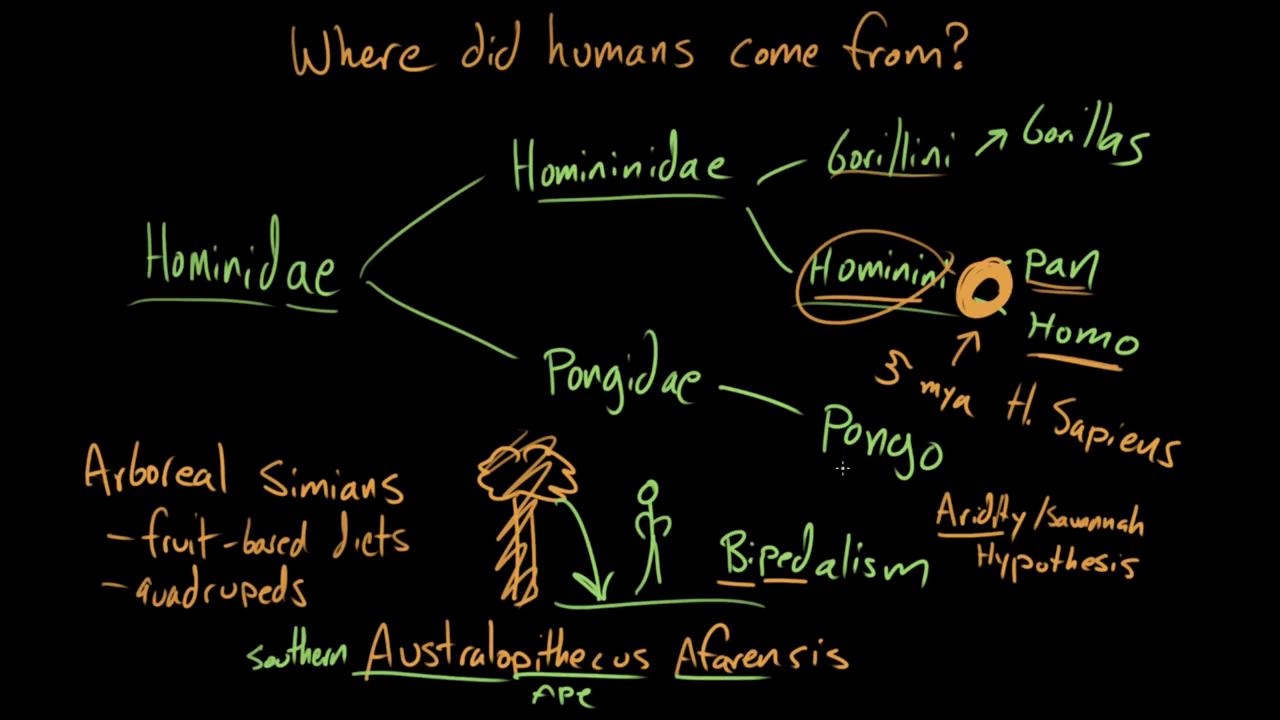 Where did humans come from?
Hominidae
Homininidae
Gorillini → Gorillas
Hominini
Pan
Homo
5 mya
H. Sapiens
Pongidae
Pongo
Arboreal Simians
- fruit-based diets
- quadrupeds
Bipedalism
Aridity/savannah
Hypothesis
southern Australopithecus Afarensis
APE